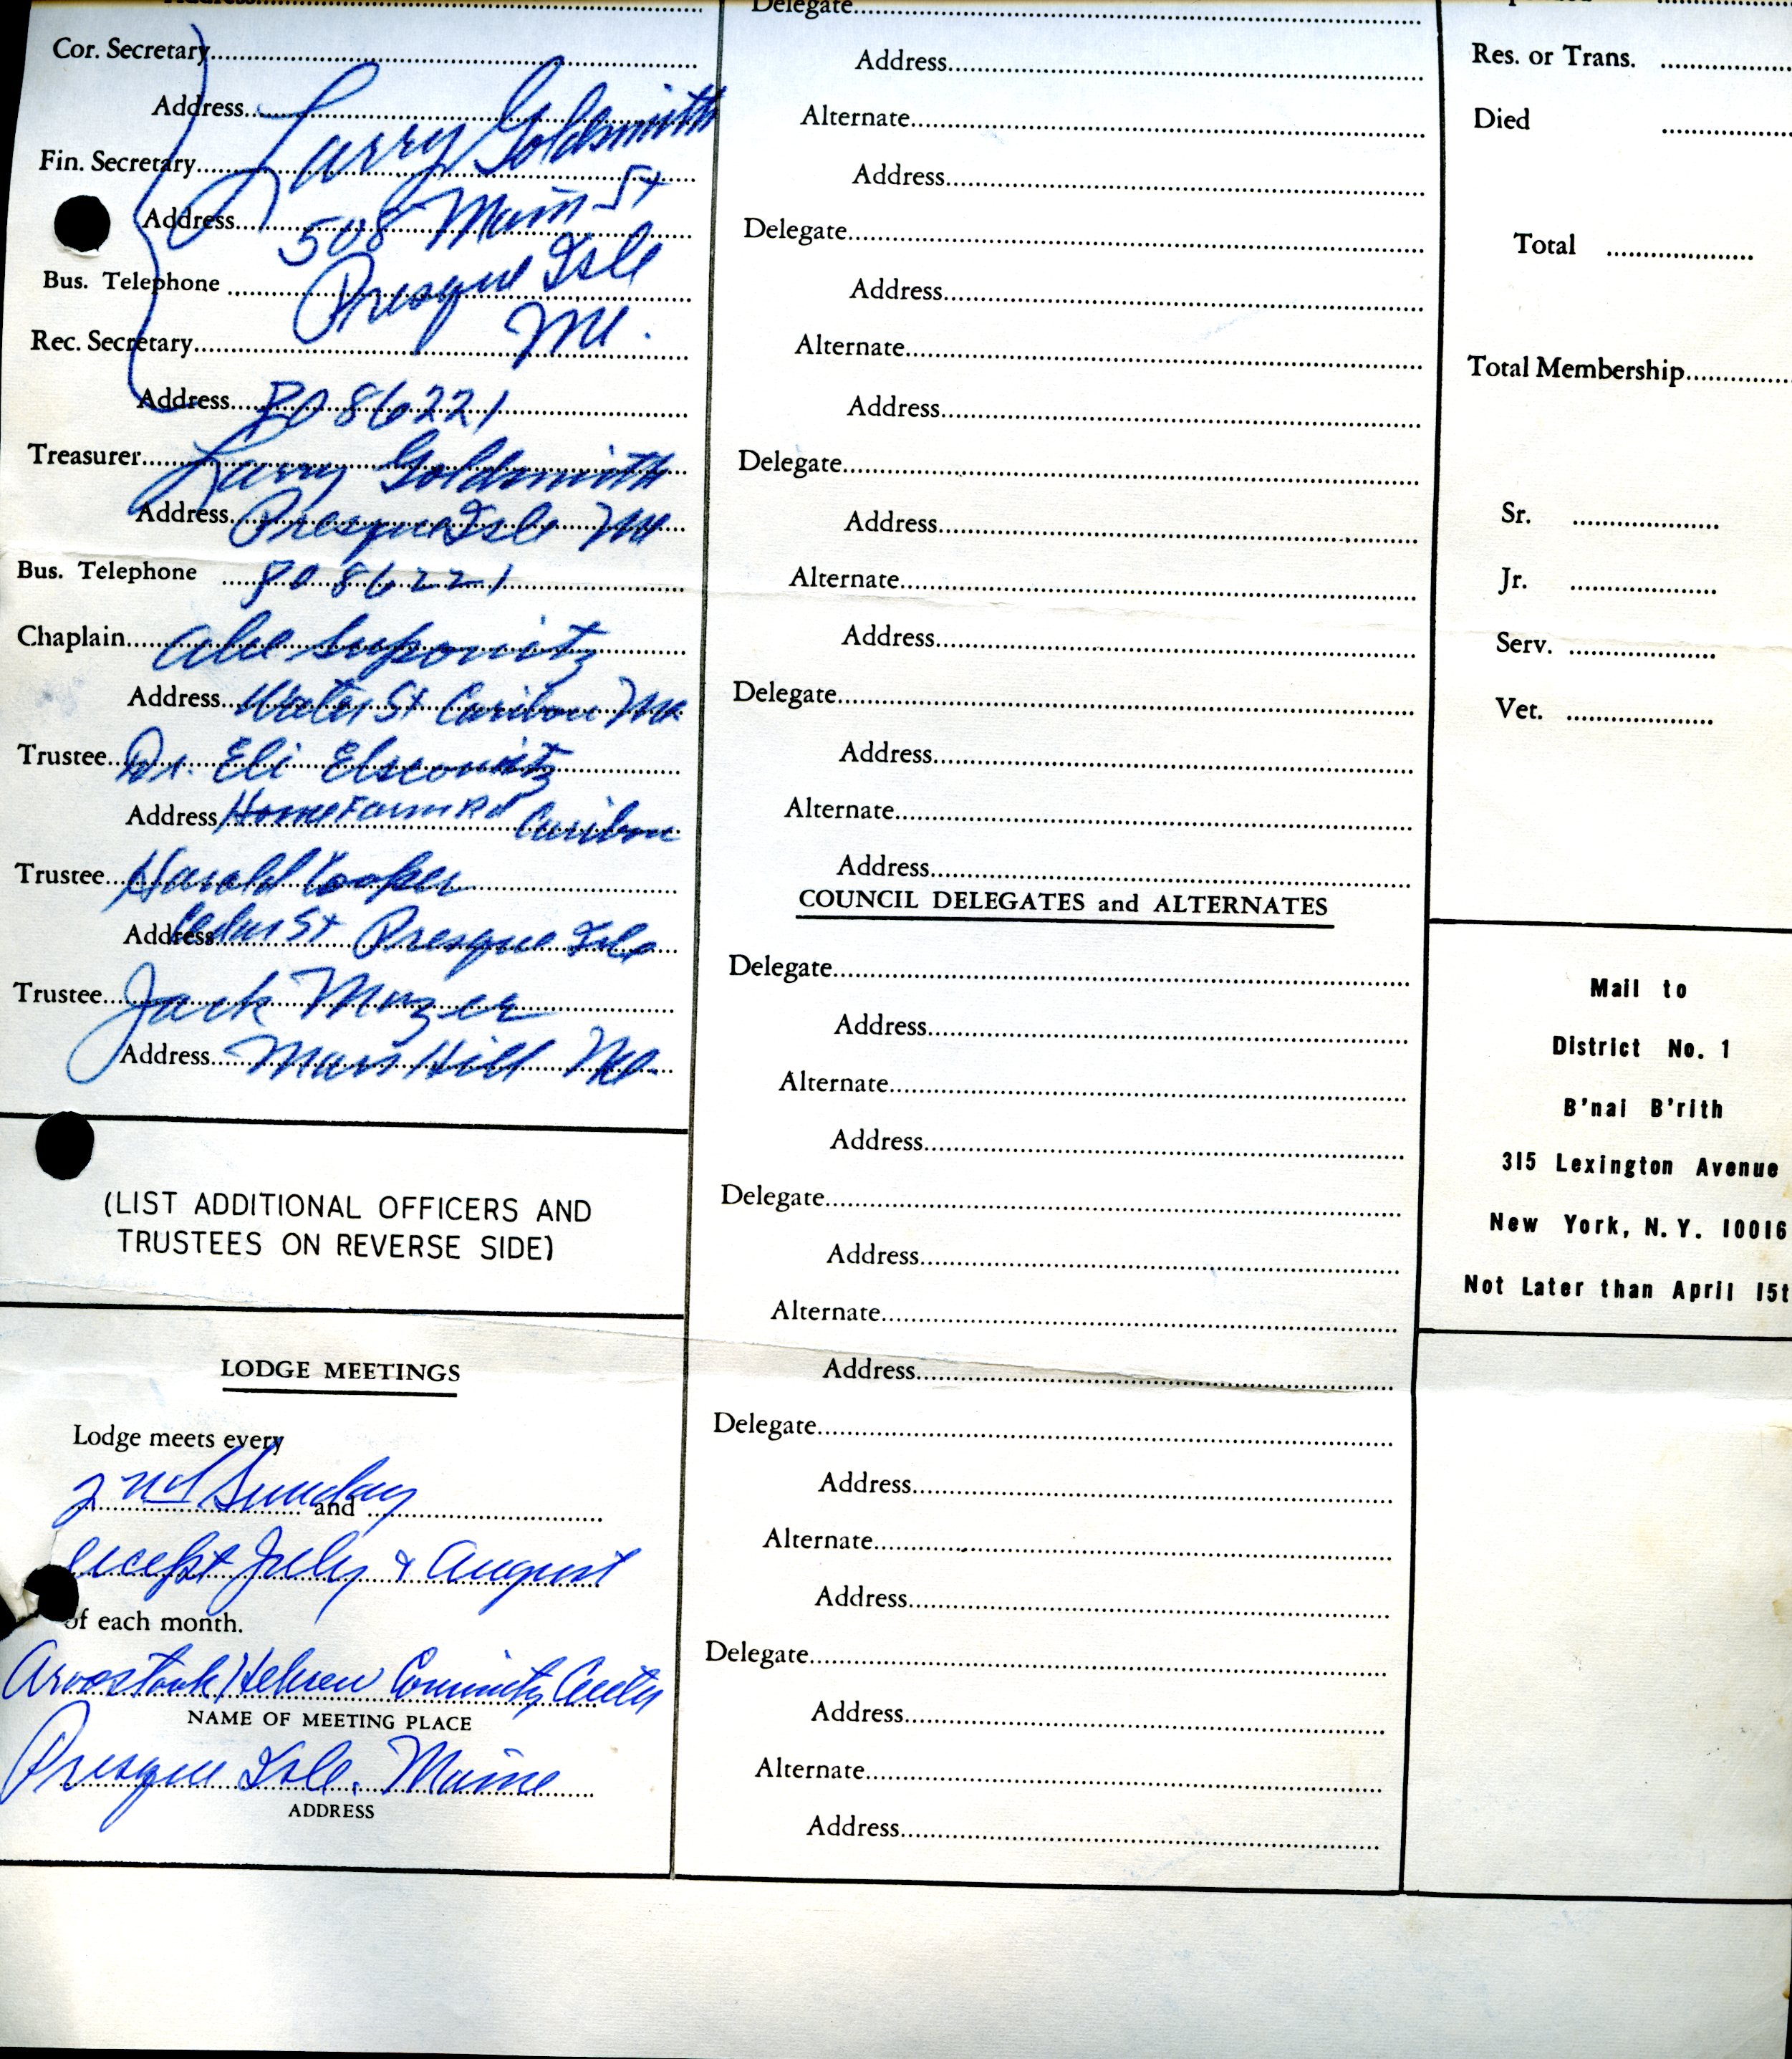 Delegate
Cor. Secretary
Address
Larry Goldsmith
Fin. Secretary
Address
508 Main St
Bus. Telephone
Presque Isle
Rec. Secretary
Me.
Address PO 86221
Treasurer Larry Goldsmith
Address Presque Isle Me
Bus. Telephone PO 86221
Chaplain Abe
Address Water St Caribou Me.
Trustee Dr. Eli
Address Home Farm Rd Caribou
Trustee Harold
Address St Presque Isle
Trustee Jack
Address Mars Hill Me.
(LIST ADDITIONAL OFFICERS AND
TRUSTEES ON REVERSE SIDE)
LODGE MEETINGS
Lodge meets every
2nd Sunday and
except July & August
of each month.
Aroostook Hebrew Community Center
NAME OF MEETING PLACE
Presque Isle, Maine
ADDRESS
Address
Alternate
Address
Delegate
Address
Alternate
Address
Delegate
Address
Alternate
Address
Delegate
Address
Alternate
Address
COUNCIL DELEGATES and ALTERNATES
Delegate
Address
Alternate
Address
Delegate
Address
Alternate
Address
Delegate
Address
Alternate
Address
Delegate
Address
Alternate
Address
Res. or Trans.
Died
Total
Total Membership
Sr.
Jr.
Serv.
Vet.
Mail to
District No. 1
B'nai B'rith
315 Lexington Avenue
New York, N.Y. 10016
Not Later than April 15t